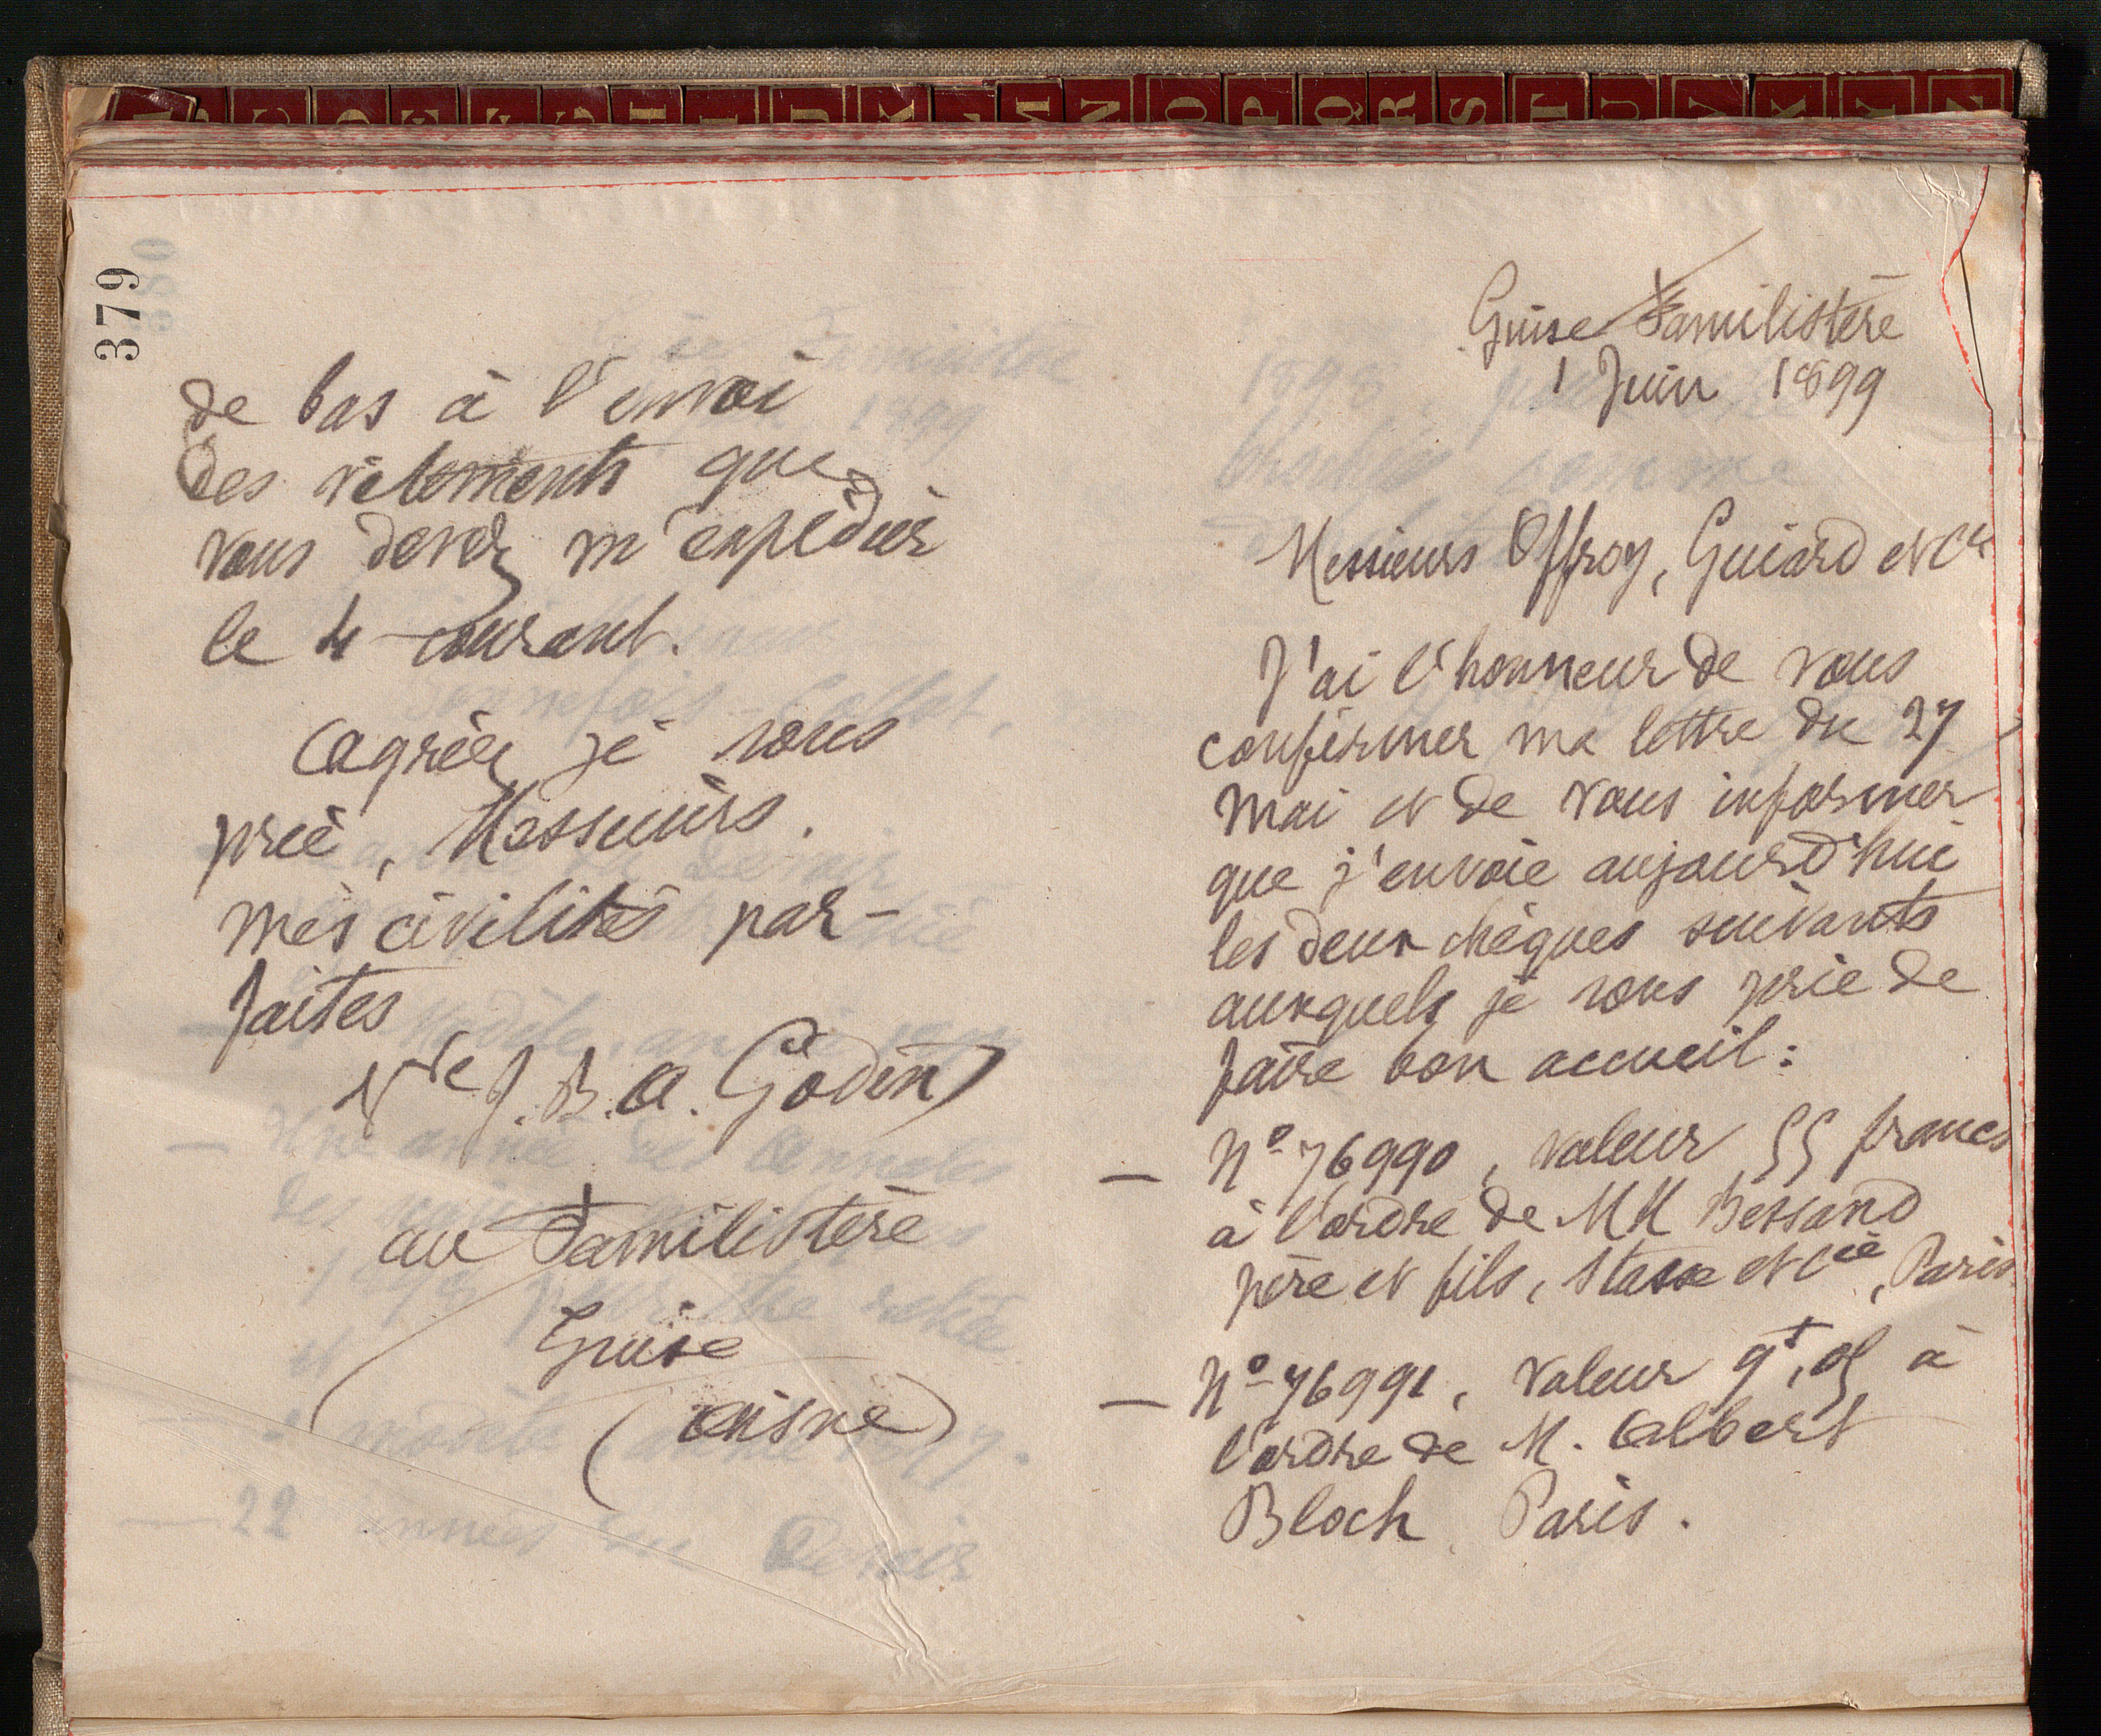 379
de bas à l'envoi
des vêtements que
vous devez m'expédier
le 4 courant.
Agréez, je vous
prie, Messieurs,
mes civilités par-
faites
Vve J. B. A. Godin
au Familistère
Guise
(Aisne)
Guise Familistère
1 Juin 1899
Messieurs Offroy, Guiard et Cie
J'ai l'honneur de vous
confirmer ma lettre du 27
mai et de vous informer
que j'envoie aujourd'hui
les deux chèques suivants
auxquels je vous prie de
faire bon accueil :
— No 76990, valeur 55 francs
à l'ordre de MM Bessand
père et fils, Stasse et Cie, Paris
— No 76991, valeur 9f,05 à
l'ordre de M. Albert
Bloch Paris.